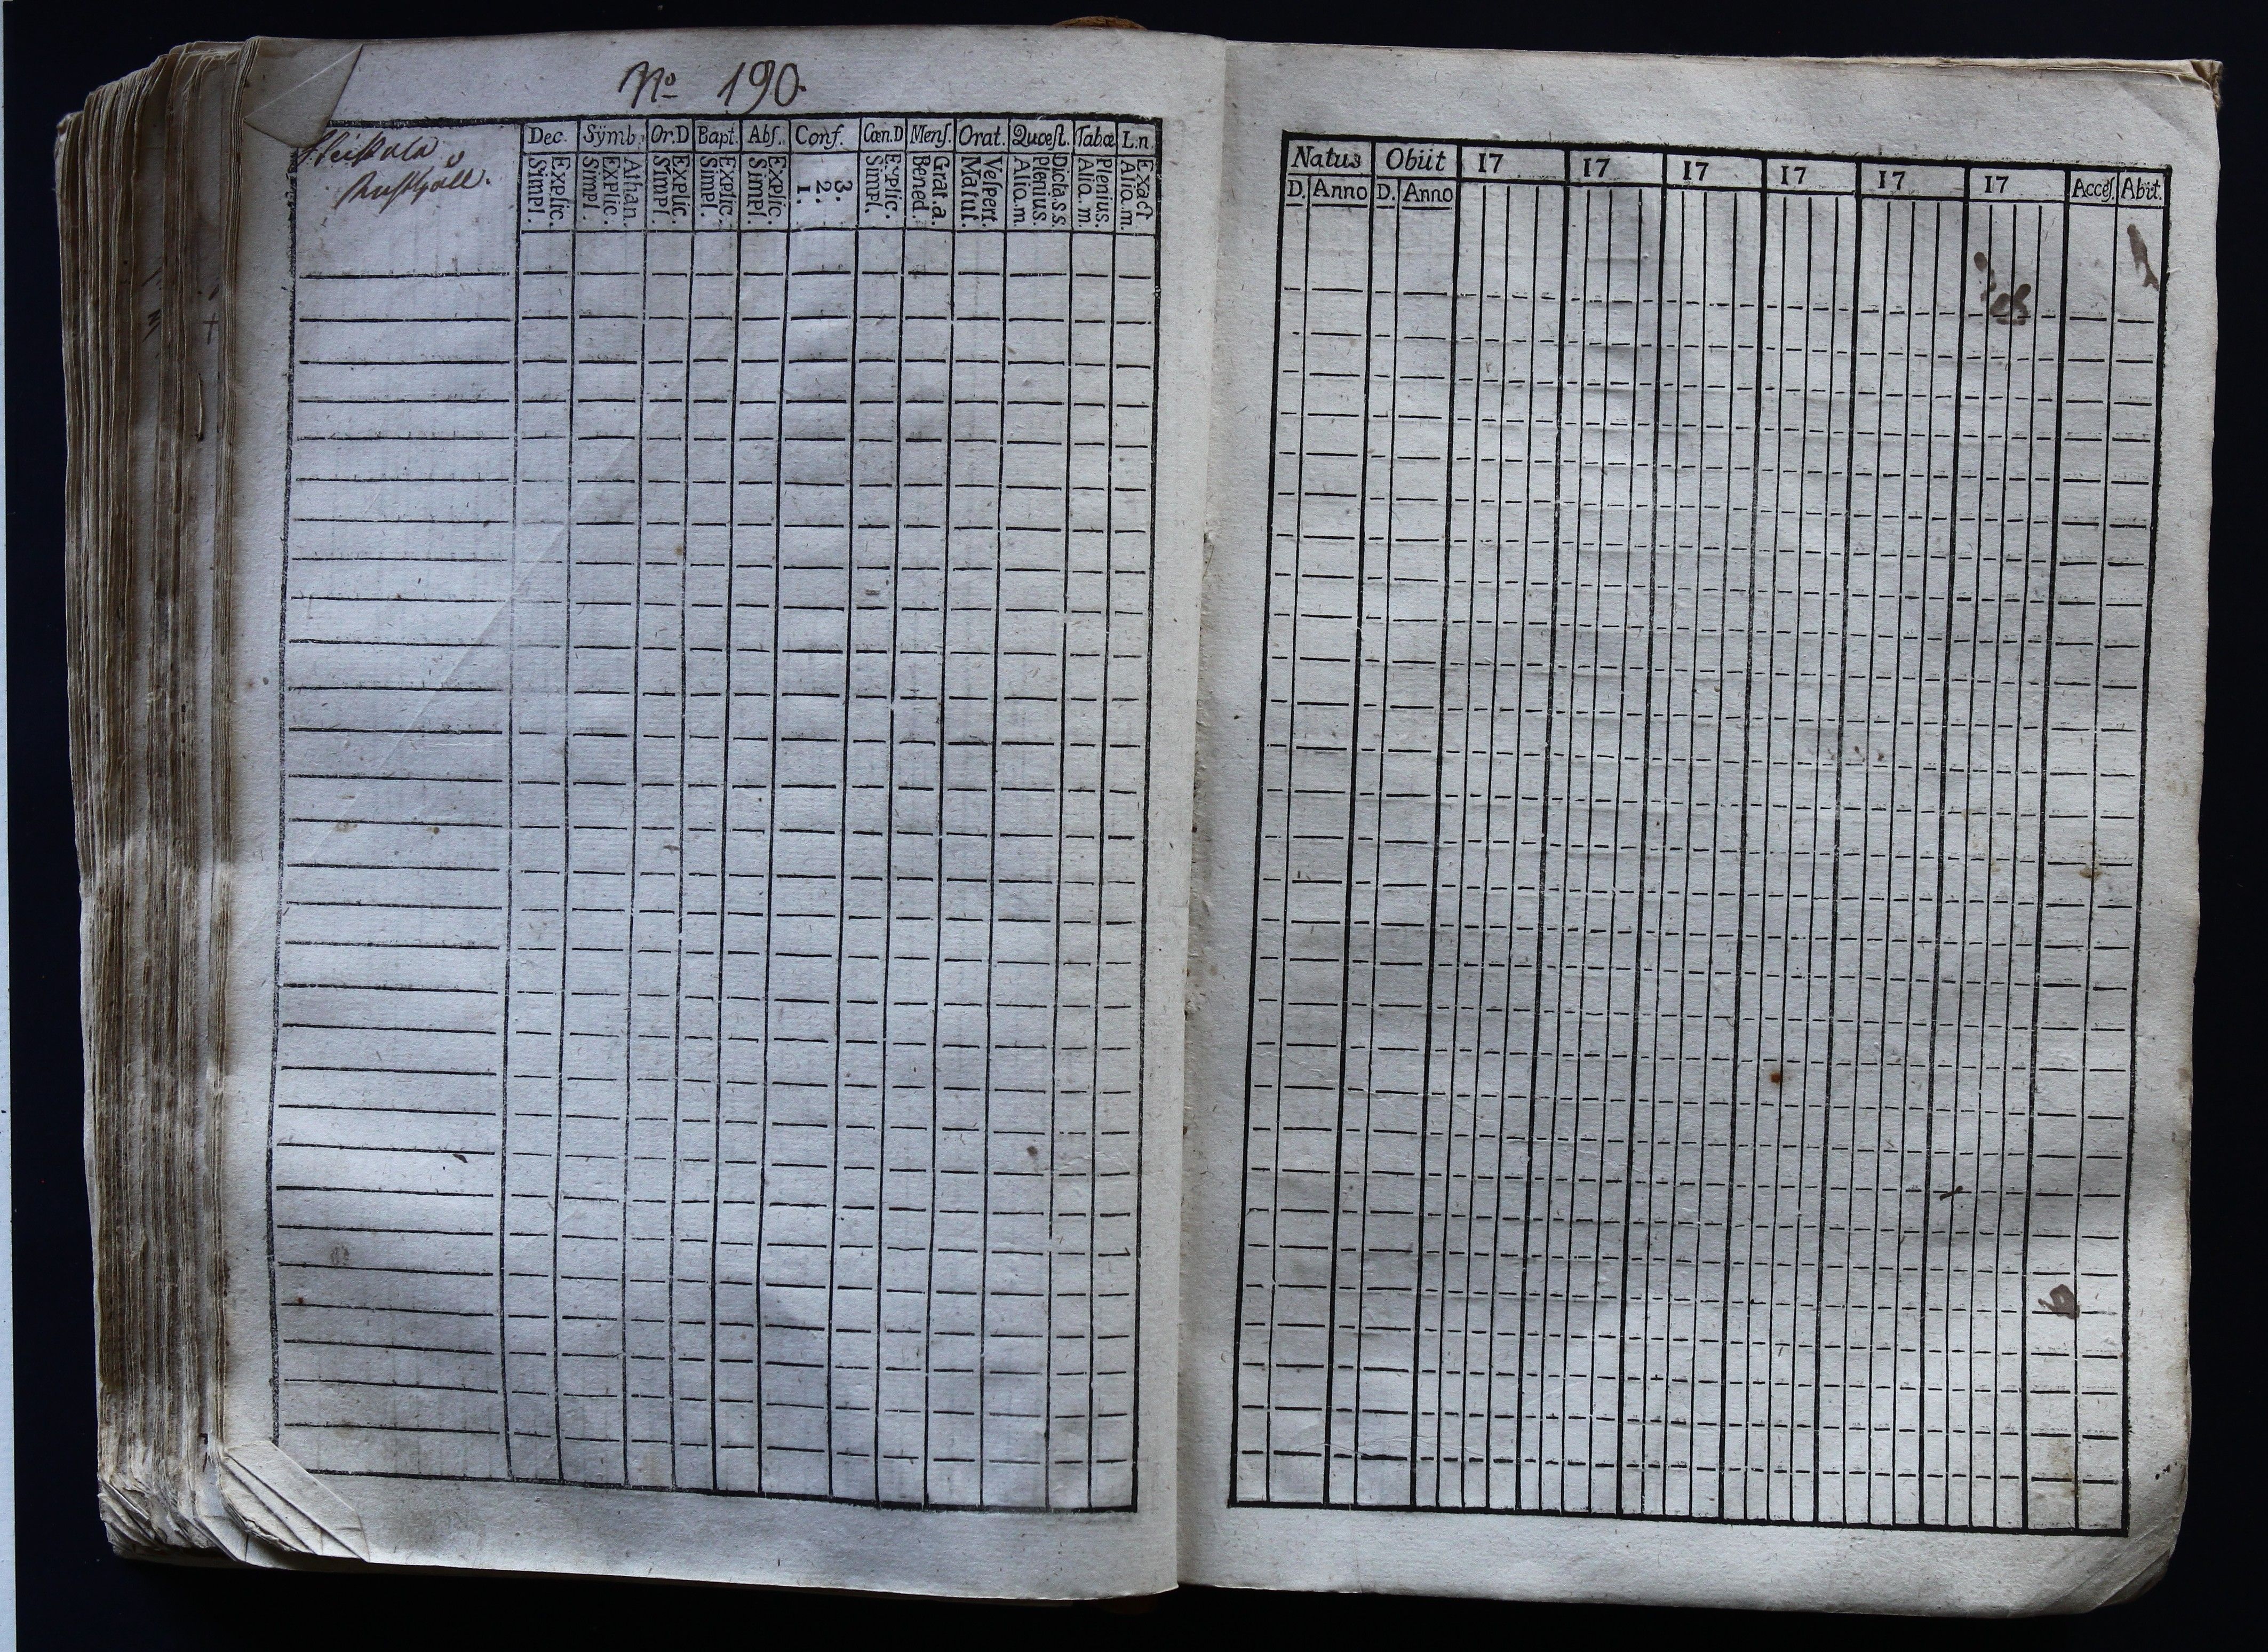 No 190.
Heikola
Rusthåll.
Dec. Sÿmb. Or.D Bapt. Abſ. Conf. Cœn.D Menſ. Orat. Quœſt. Tabœ L.n
Explic. Simpl. Athan. Explic. Simpl. Explic. Simpl. Explic. Simpl. Explic. Simpl. 3. 2. 1. Explic. Simpl. Grat.a. Bened. Veſpert. Matut. Dicta.s.s. Plenius. Aliq.m. Plenius. Aliq.m. Exact Aliq.m.
Natus Obiit 17 17 17 17 17 17 Acceſ. Abiit.
D. Anno D. Anno